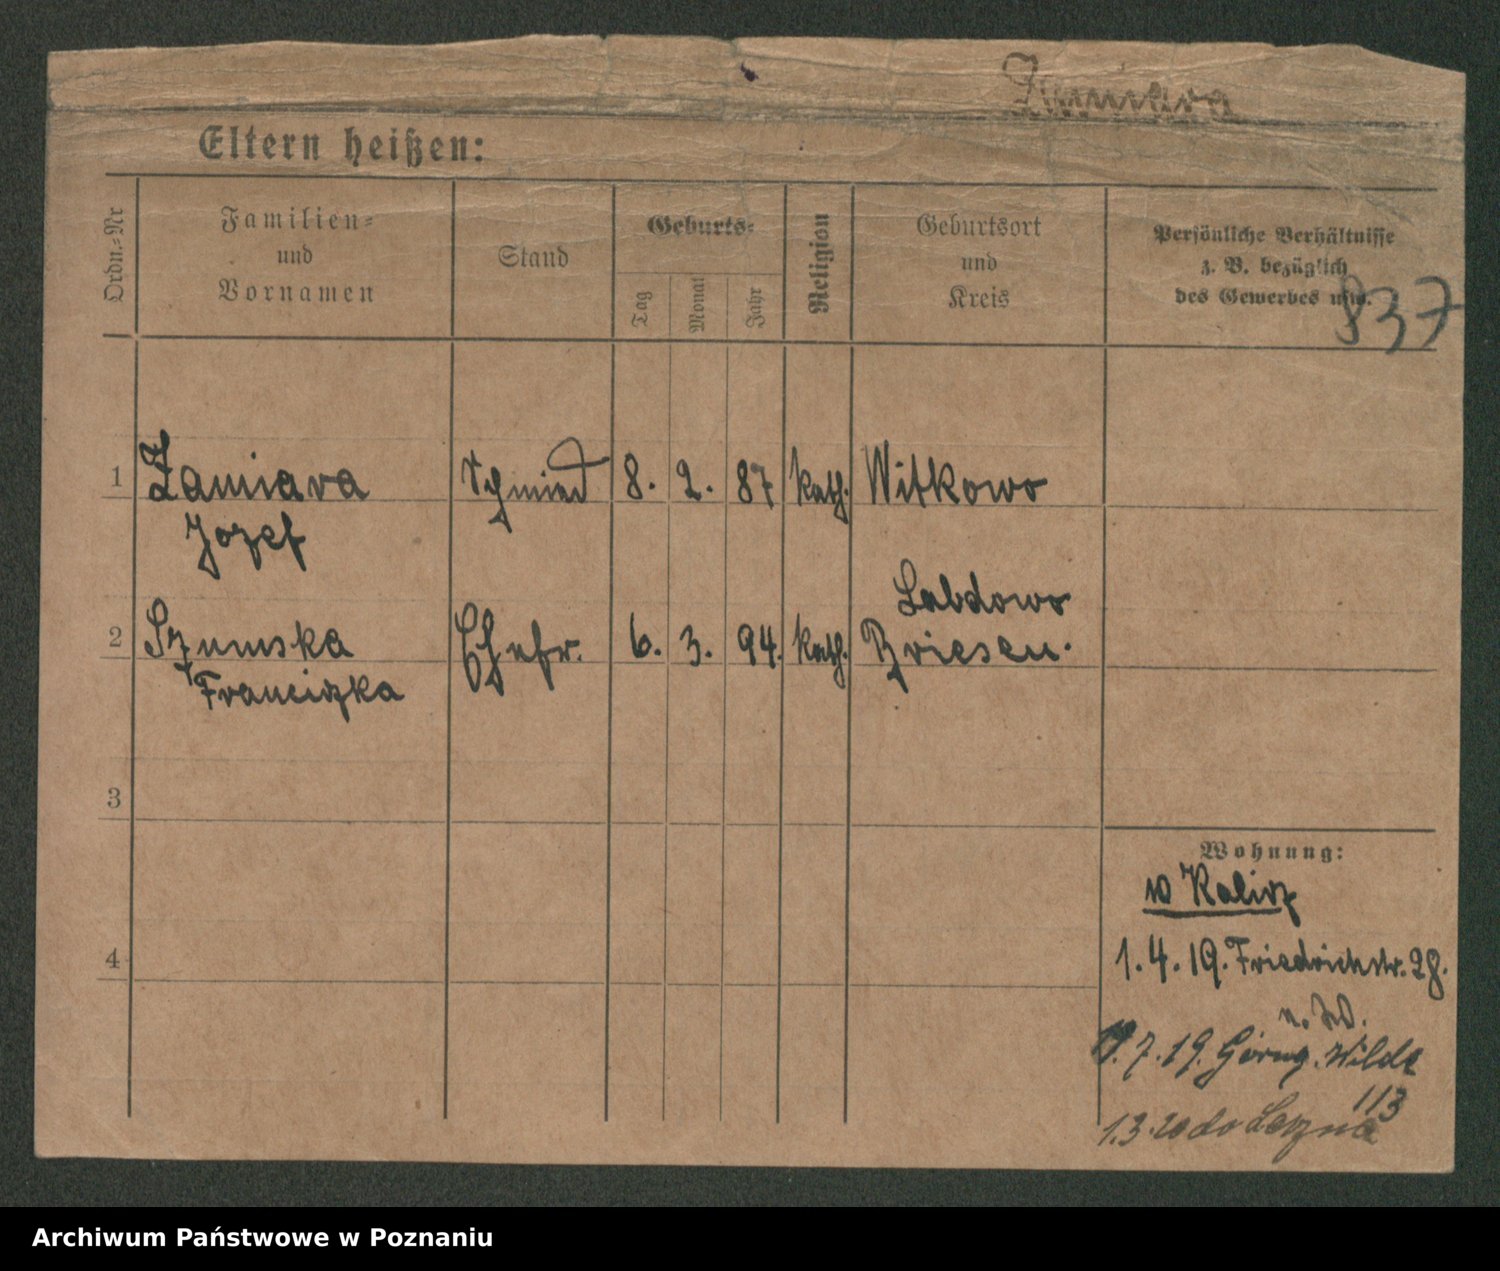 Zamiara
Eltern heißen:
Ordn.=Nr
Familien=
und
Vornamen
Stand
Geburts=
Tag
Monat
Jahr
Religion
Geburtsort
und
Kreis
Persönliche Verhältnisse
z. B. bezüglich
des Gewerbes usw.
837
1 Zamiara Schmied 8. 2. 87 kath. Witkowo
Jozef
Labdowo
2 Szumska Ehefr. 6. 3. 94. kath. Briesen.
Franciszka
3
Wohnung:
w Kalisz
4
1.4.19. Friedrichstr. 28.
.7.19. Górna Wilda
113
1.3.20 do
Archiwum Państwowe w Poznaniu